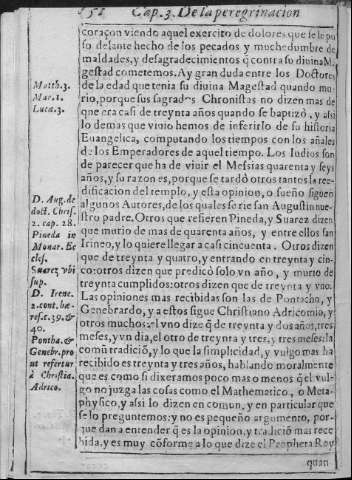 52 Cap. 3. De la peregrinacion
coraçon viendo aquel exercito de dolores que se le pu
so delante hecho de los pecados y muchedumbre de
maldades, y desagradecimientos q̃ contra su diuina Ma
gestad cometemos. Ay gran duda entre los Doctores
de la edad que tenia su diuina Magestad quando mu-
rio, porque sus sagrados Chronistas no dizen mas de
que era casi de treynta años quando se baptizó, y assi
lo demas que viuio hemos de inferirlo de su historia
Euangelica, computando los tiempos con los añales
de los Emperadores de aquel tiempo. Los Iudios son
de parecer que ha de viuir el Messias quarenta y seys
años, y su razon es, porque se tardó otros tantos la ree-
dificacion del templo, y esta opinion, o sueño siguen
algunos Autores, de los quales se rie san Augustin nues-
tro padre. Otros que refieren Pineda, y Suarez dizen
que murio de mas de quarenta años, y entre ellos san
Irineo, y lo quiere llegar a casi cincuenta. Otros dizen
que de treynta y quatro, y entrando en treynta y cin-
co: otros dizen que predicó solo vn año, y murio de
treynta cumplidos: otros dizen que de treynta y vno.
Las opiniones mas recibidas son las de Pontacho, y
Genebrardo, y a estos sigue Christiano Adricomio, y
otros muchos: el vno dize q̃ de treynta y dos años, tres
meses, y vn dia, el otro de treynta y tres, y tres meses: la
comũ tradiciõ, y lo que la simplicidad, y vulgo mas ha
recibido es treynta y tres años, hablando moralmente
que es como si dixeramos poco mas o menos q̃ el vul-
go no juzga las cosas como el Mathematico, o Meta-
physico, y assi lo dizen en comun, y en particular que
se lo preguntemos: y no es pequeño argumento, por-
que dan a entender q̃ es la opinion, y tradiciõ mas rece
bida, y es muy cõforme a lo que dize el Propheta Rey
quan
Matth. 3.
Mar. 1.
Luca. 3.
D. Aug. de
doct. Chris.
2. cap. 28.
Pineda in
Monar. Ec
cles.
Suarez vbi
sup.
D. Irene.
2. cont. hæ-
res. c. 39. &
40.
Pontha. &
Genebr. pro
ut refertur
à Christia.
Adrico.